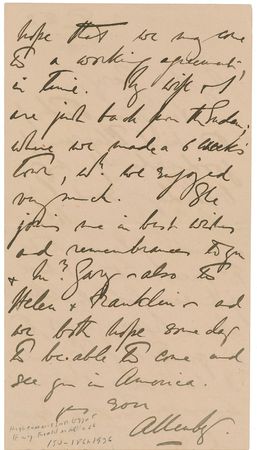 hope that we may come
to a working agreement
in time. My wife & I
are just back from the Sudan,
where we made a 6 weeks
tour, wʰ we enjoyed
very much. She
joins me in best wishes
and remembrances to you
& Mʳˢ Gary - also to
Helen & Franklin - and
we both hope some day
to be able to come and
see you in America.
yours
Allenby